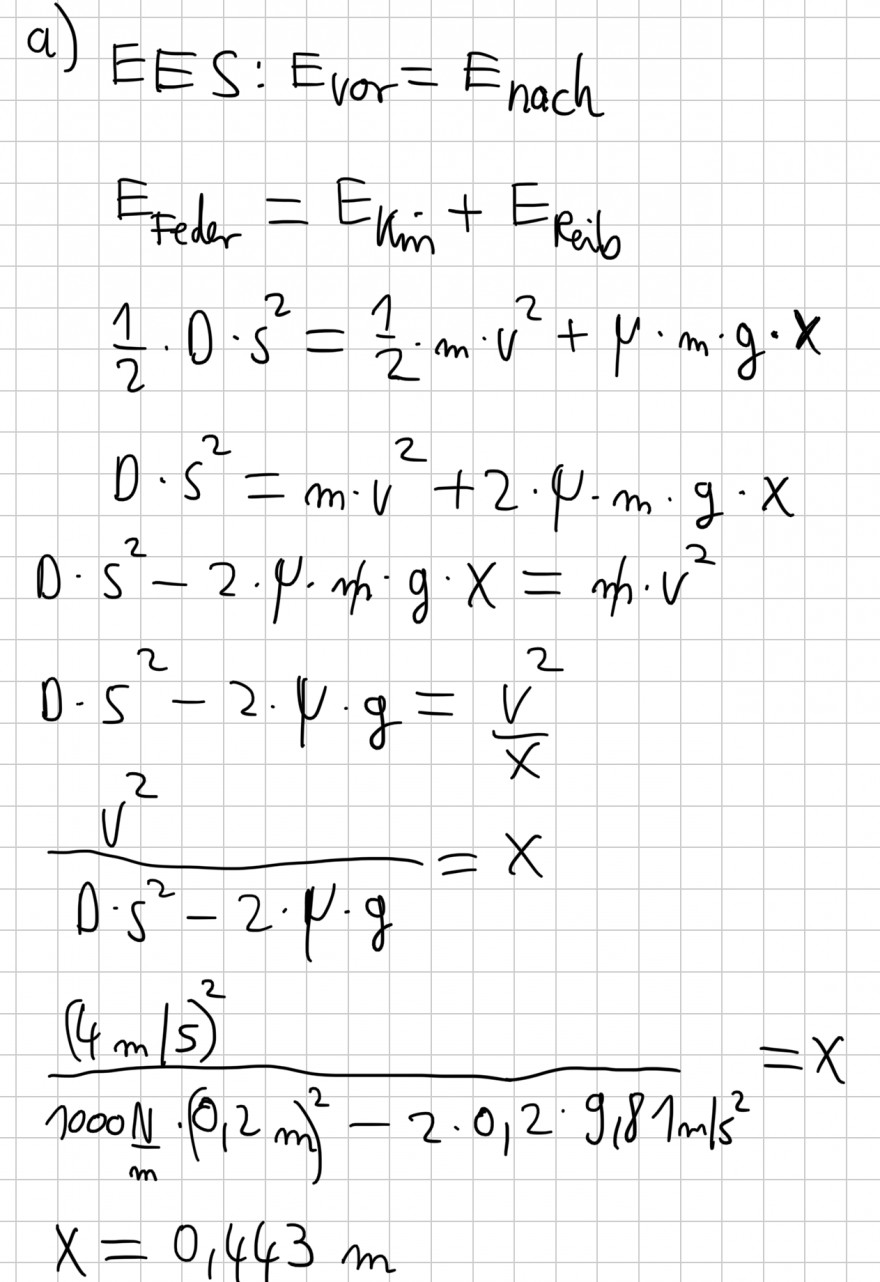 a) EES: E_vor = E_nach
E_Feder = E_Kin + E_Reib
1/2 · D · s² = 1/2 · m · v² + μ · m · g · x
D · s² = m · v² + 2 · μ · m · g · x
D · s² − 2 · μ · m · g · x = m · v²
D · s² − 2 · μ · g = v²/x
v² / (D · s² − 2 · μ · g) = x
(4 m/s)² / (1000 N/m · (0,2 m)² − 2 · 0,2 · 9,81 m/s²) = x
x = 0,443 m